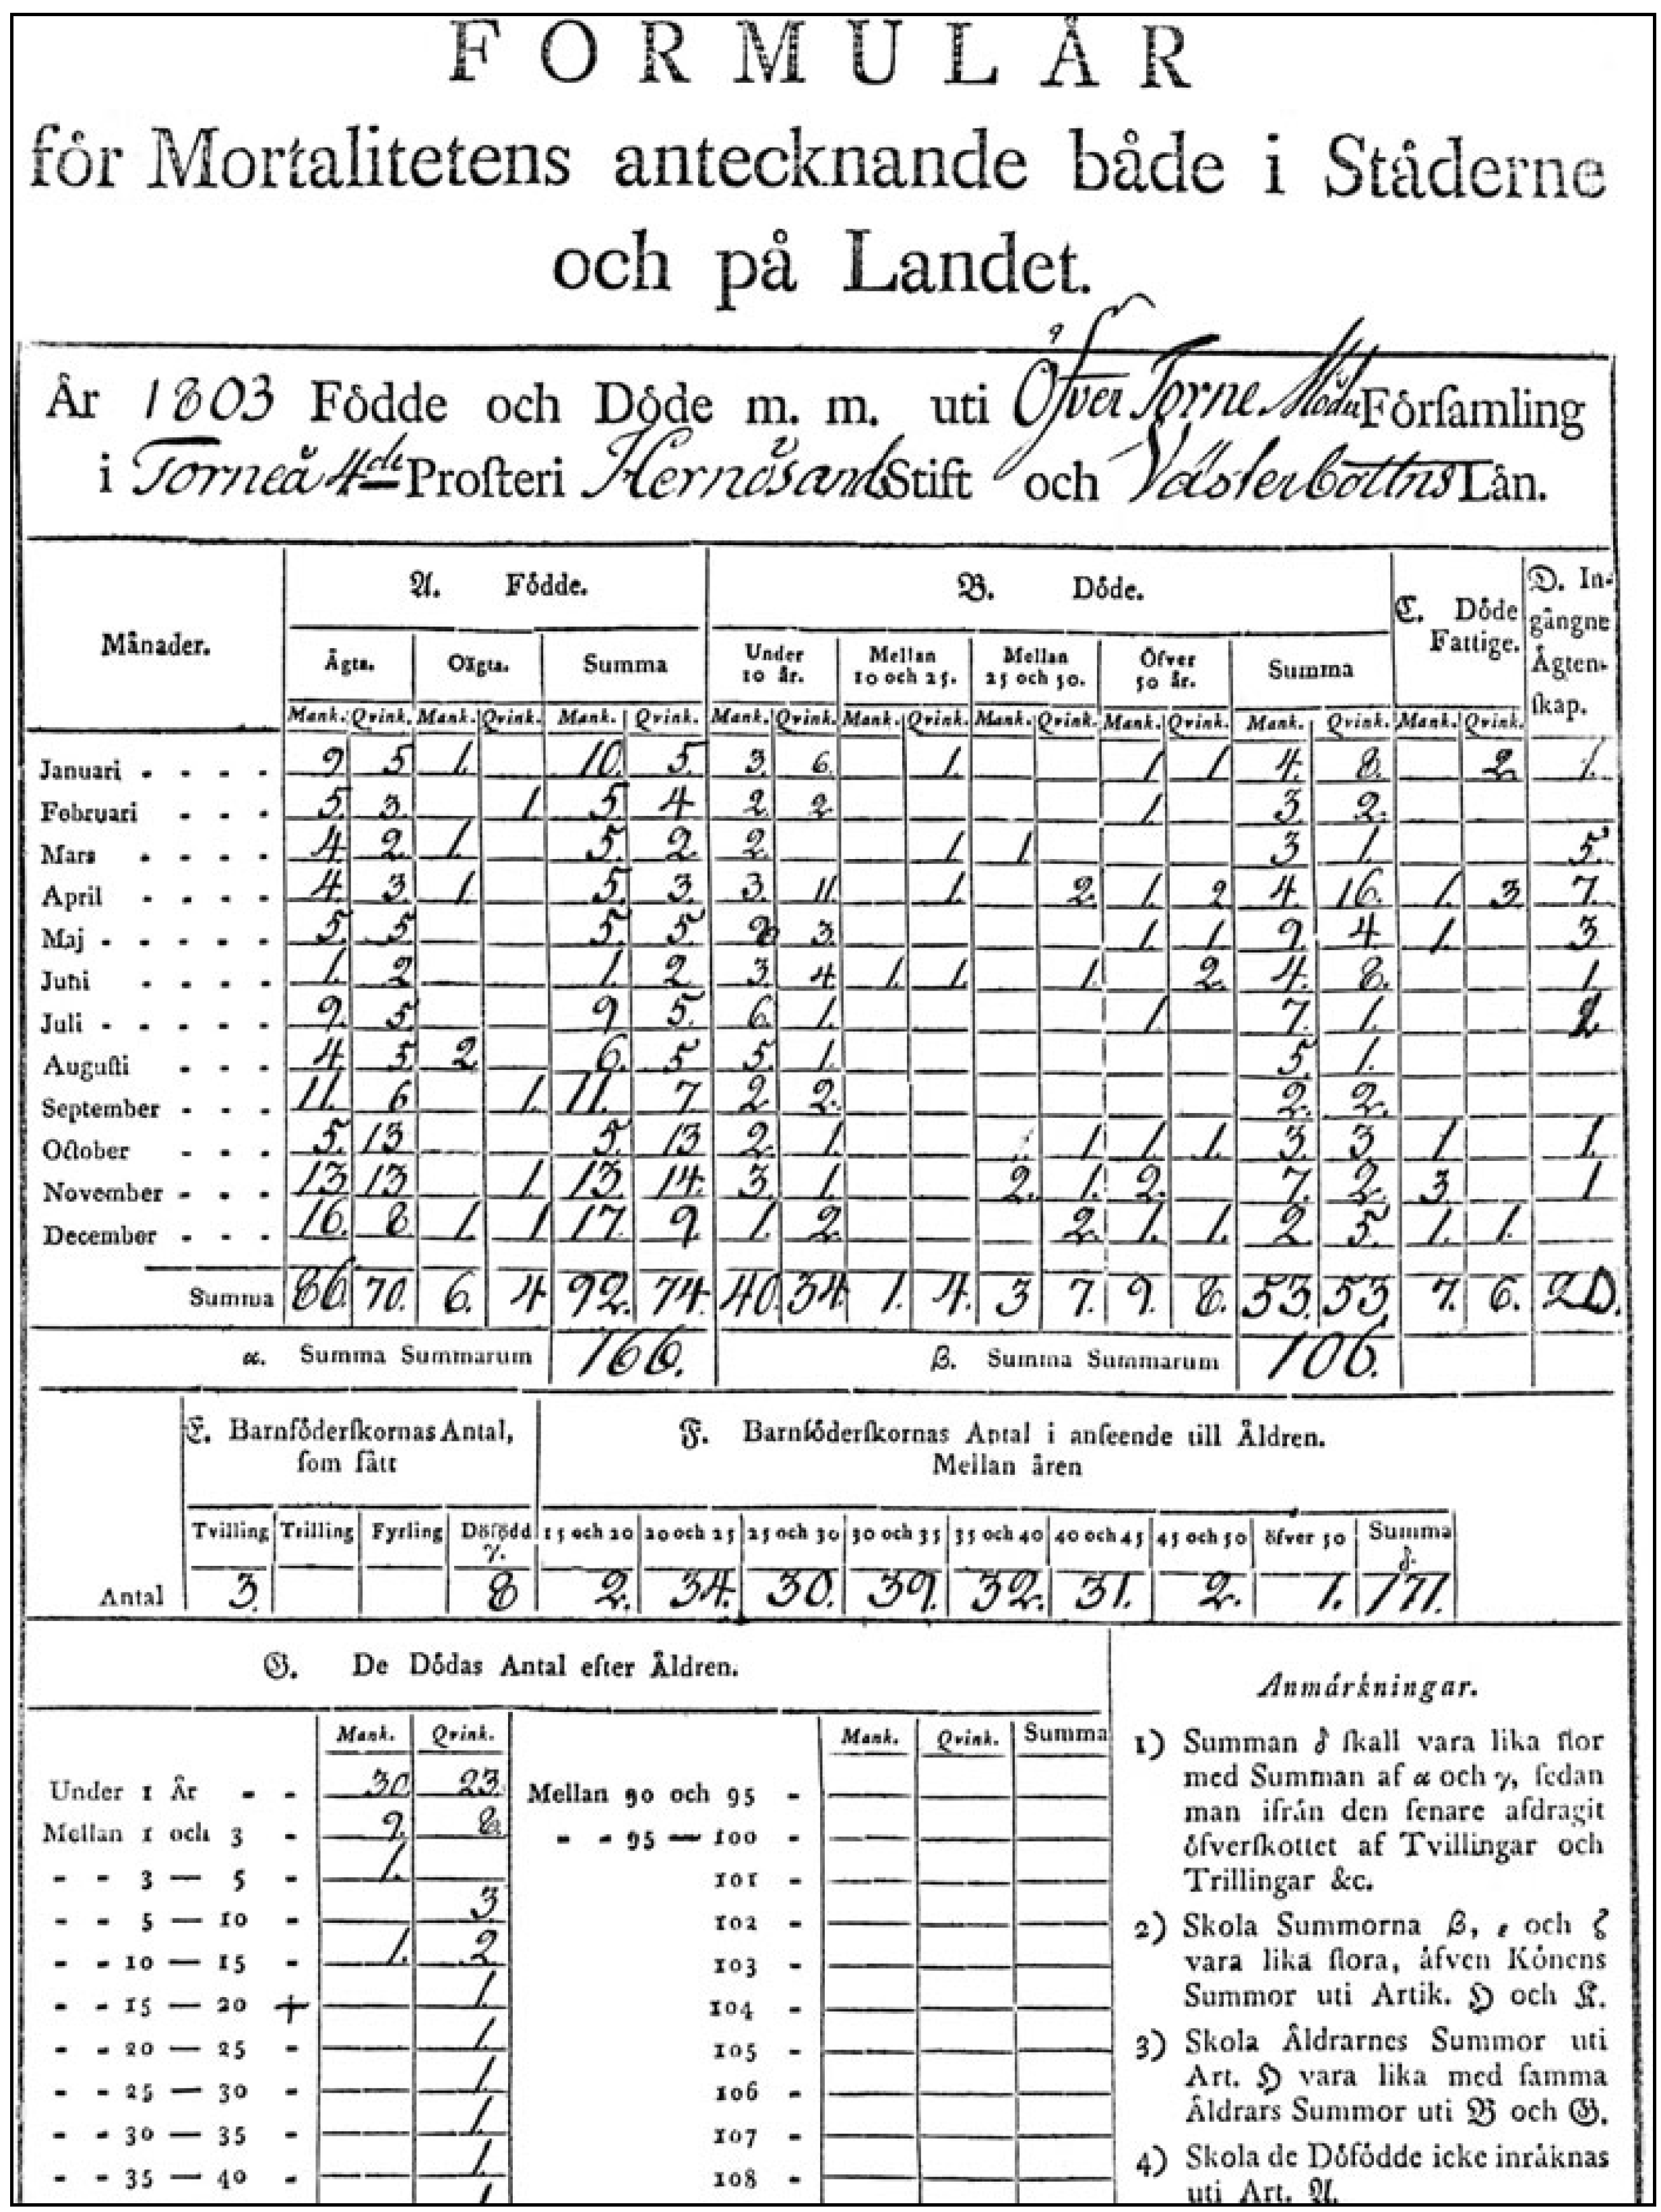 FORMULÅR
för Mortalitetens antecknande både i Ståderne
och på Landet.
År 1803 Födde och Döde m. m. uti Öfver Torne Förſamling
i Torneå 4de Proſteri Hernösands Stift och Västerbottns Lån.
Månader. A. Födde. B. Döde. C. Döde Fattige. D. Ingångne Ågtenſkap.
Ågta. Oågta. Summa Under 10 år. Mellan 10 och 25. Mellan 25 och 50. Öfver 50 år. Summa
Mank. Qvink. Mank. Qvink. Mank. Qvink. Mank. Qvink. Mank. Qvink. Mank. Qvink. Mank. Qvink. Mank. Qvink. Mank. Qvink.
Januari - - - - 9 5 1. 10. 5. 3. 6. 1. 1 1 4. 8. 2 1.
Februari - - - 5. 3. 1. 5. 4 2. 2. 1. 3. 2.
Mars - - - - 4. 2. 1. 5. 2. 2. 1 1 3 1. 5.
April - - - - 4. 3. 1. 5. 3. 3. 11. 1. 2. 1. 2 4. 16. 1. 3 7.
Maj - - - - - 5. 5 5. 5. 3. 1. 1 9. 4 1. 3
Juni - - - - 1. 2 1. 2 3. 4. 1. 1. 1. 2. 4. 8. 1.
Juli - - - - - 9. 5. 9 5. 6. 1. 1. 7. 1. 2
Auguſti - - - 4. 5. 2. 6. 5 5. 1. 5. 1.
September - - - 11. 6 1. 11. 7. 2 2. 2. 2.
October - - - 5. 13 5. 13 2. 1. 1 1. 1. 3. 3 1 1.
November - - - 13 13 1. 13. 14. 3. 1. 2. 1. 2. 7. 2. 3. 1
December - - - 16. 8 1. 1 17. 9. 1. 2. 2. 1. 1. 2 5. 1. 1.
Summa 86. 70. 6. 4 92. 74. 40. 34. 1. 4. 3 7. 9. 8. 53. 53. 7. 6. 20.
α. Summa Summarum 166. β. Summa Summarum 106.
E. Barnföderſkornas Antal, F. Barnföderſkornas Antal i anſeende till Åldren.
ſom fått Mellan åren
Tvilling Trilling Fyrling Döfödd 15 och 20 20 och 25 25 och 30 30 och 35 35 och 40 40 och 45 45 och 50 öfver 50 Summa
γ. δ.
Antal 3. 8 2. 34. 30. 39. 32. 31. 2. 1. 171.
G. De Dödas Antal efter Åldren.
Mank. Qvink. Mank. Qvink. Summa
Under 1 År - - 30 23.
Mellan 1 och 3 - 9. 8.
- - 3 — 5 - 1.
- - 5 — 10 - 3
- - 10 — 15 - 1. 2
- - 15 — 20 + 1.
- - 20 — 25 - 1.
- - 25 — 30 - 1.
- - 30 — 35 - 1.
- - 35 — 40 - 1.
Mellan 90 och 95 -
- - 95 — 100 -
101 -
102 -
103 -
104 -
105 -
106 -
107 -
108 -
Anmårkningar.
1) Summan δ ſkall vara lika ſtor
med Summan af α och γ, ſedan
man ifrån den ſenare afdragit
öfverſkottet af Tvillingar och
Trillingar &c.
2) Skola Summorna β, ε och ζ
vara lika ſtora, åfven Könens
Summor uti Artik. H och K.
3) Skola Åldrarnes Summor uti
Art. H vara lika med ſamma
Åldrars Summor uti B och G.
4) Skola de Döfödde icke inråknas
uti Art. A.